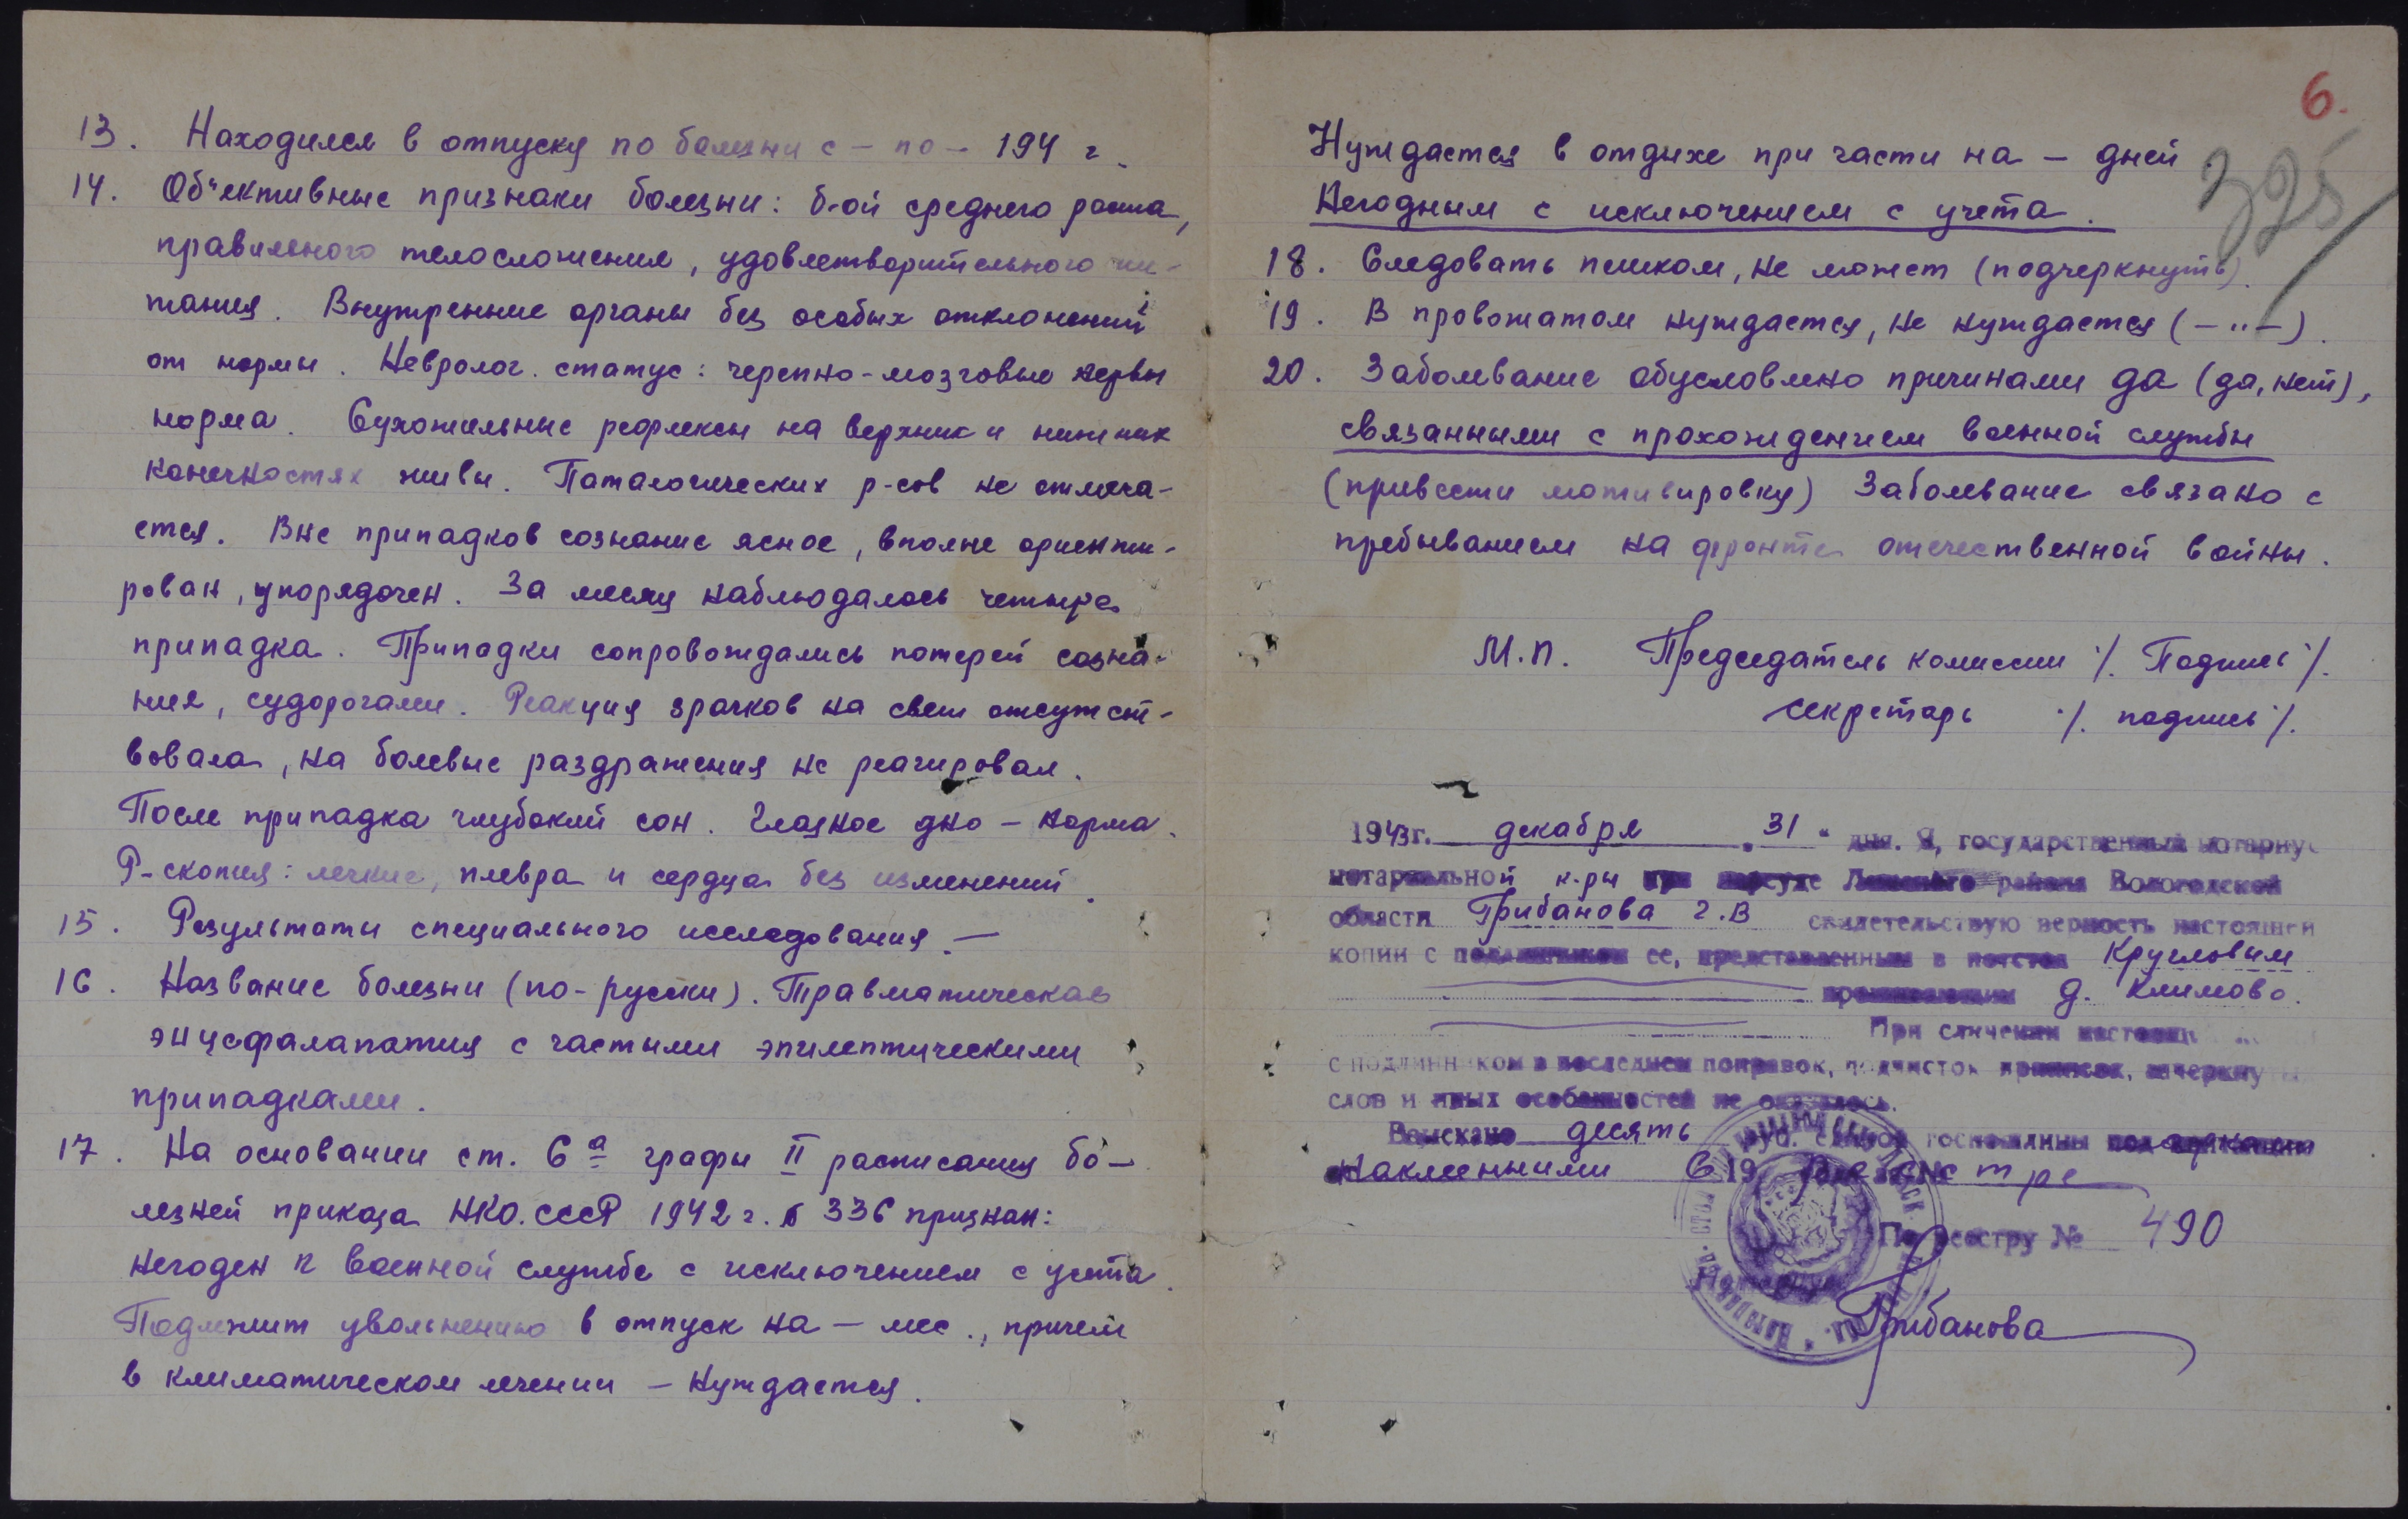 13. Находился в отпуску по болезни с – по – 194 г.
14. Об"ективные признаки болезни: б-ой среднего роста,
правильного телосложения, удовлетворительного пи-
тания. Внутренние органы без особых отклонений
от нормы. Невролог. статус: черепно-мозговые нервы
норма. Сухожильные рефлексы на верхних и нижних
конечностях живы. Патологических р-сов не отмеча-
ется. Вне припадков сознание ясное, вполне ориенти-
рован, упорядочен. За месяц наблюдалось четыре
припадка. Припадки сопровождались потерей созна-
ния, судорогами. Реакция зрачков на свет отсутст-
вовала, на болевые раздражения не реагировал.
После припадка глубокий сон. Глазное дно – норма.
Р-скопия: легкие, плевра и сердца без изменений.
15. Результаты специального исследования. —
16. Название болезни (по-русски). Травматическая
энцефалапатия с частыми эпилептическими
припадками.
17. На основании ст. 6а графы II расписания бо-
лезней приказа НКО.СССР 1942 г. № 336 признан:
негоден к военной службе с исключением с учета.
Подлежит увольнению в отпуск на – мес., причем
в климатическом лечении – нуждается.
6.
325
Нуждается в отдыхе при части на – дней
Негодным с исключением с учета.
18. Следовать пешком, не может (подчеркнуть).
19. В провожатом нуждается, не нуждается (–"–).
20. Заболевание обусловлено причинами да (да, нет),
связанными с прохождением военной службы
(привести мотивировку) Заболевание связано с
пребыванием на фронте отечественной войны.
М.П. Председатель комиссии /. Подпись /.
секретарь /. подпись /.
1943г. декабря "31" дня. Я, государственный нотариус
нотариальной к-ры района Вологодской
области Грибанова Г.В свидетельствую верность настоящей
копии с подлинником ее, представленным в Кругловым
проживающим д. Климово.
При сличении настоящ
с подлинником в последнем поправок, подчисток приписок, зачеркнутых
слов и иных особенностей не оказалось.
Взыскано десять руб. госпошлины марками
наклеенными в реестре
По реестру № 490
Нотариус Грибанова